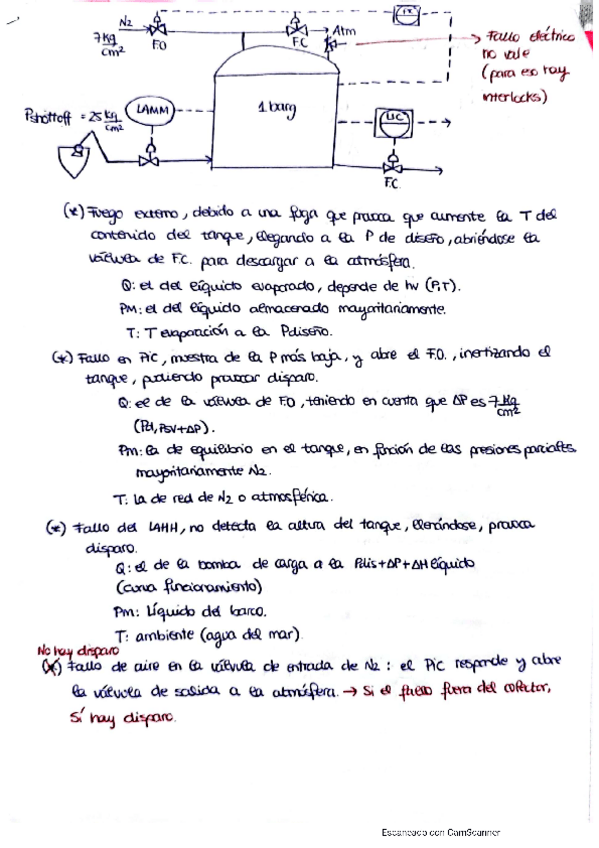 N2
7 Kg/cm²
F.O
F.C
Atm
Fallo eléctrico
no vale
(para eso hay
interlocks)
Pshuttoff = 25 kg/cm²
LAMM
1 barg
LIC
F.C.
(*) Fuego externo, debido a una fuga que provoca que aumente la T del
contenido del tanque, llegando a la P de diseño, abriéndose la
válvula de F.C. para descargar a la atmósfera.
Q: el del líquido evaporado, depende de hv (P,T).
PM: el del líquido almacenado mayoritariamente.
T: T evaporación a la Pdiseño.
(*) Fallo en PIC, muestra de la P más baja, y abre el F.O., inertizando el
tanque, pudiendo provocar disparo.
Q: el de la válvula de FO, teniendo en cuenta que ΔP es 7 Kg/cm²
(Pd, PSV+ΔP).
Pm: la de equilibrio en el tanque, en función de las presiones parciales
mayoritariamente N2.
T: la de red de N2 o atmosférica.
(*) Fallo del LAHH, no detecta la altura del tanque, llenándose, provoca
disparo.
Q: el de la bomba de carga a la Pdis+ΔP+ΔH líquido
(curva funcionamiento)
Pm: Líquido del barco.
T: ambiente (agua del mar).
No hay disparo
(*) Fallo de aire en la válvula de entrada de N2: el PIC responde y abre
la válvula de salida a la atmósfera. → Si el fallo fuera del colector,
Sí hay disparo.
Escaneado con CamScanner